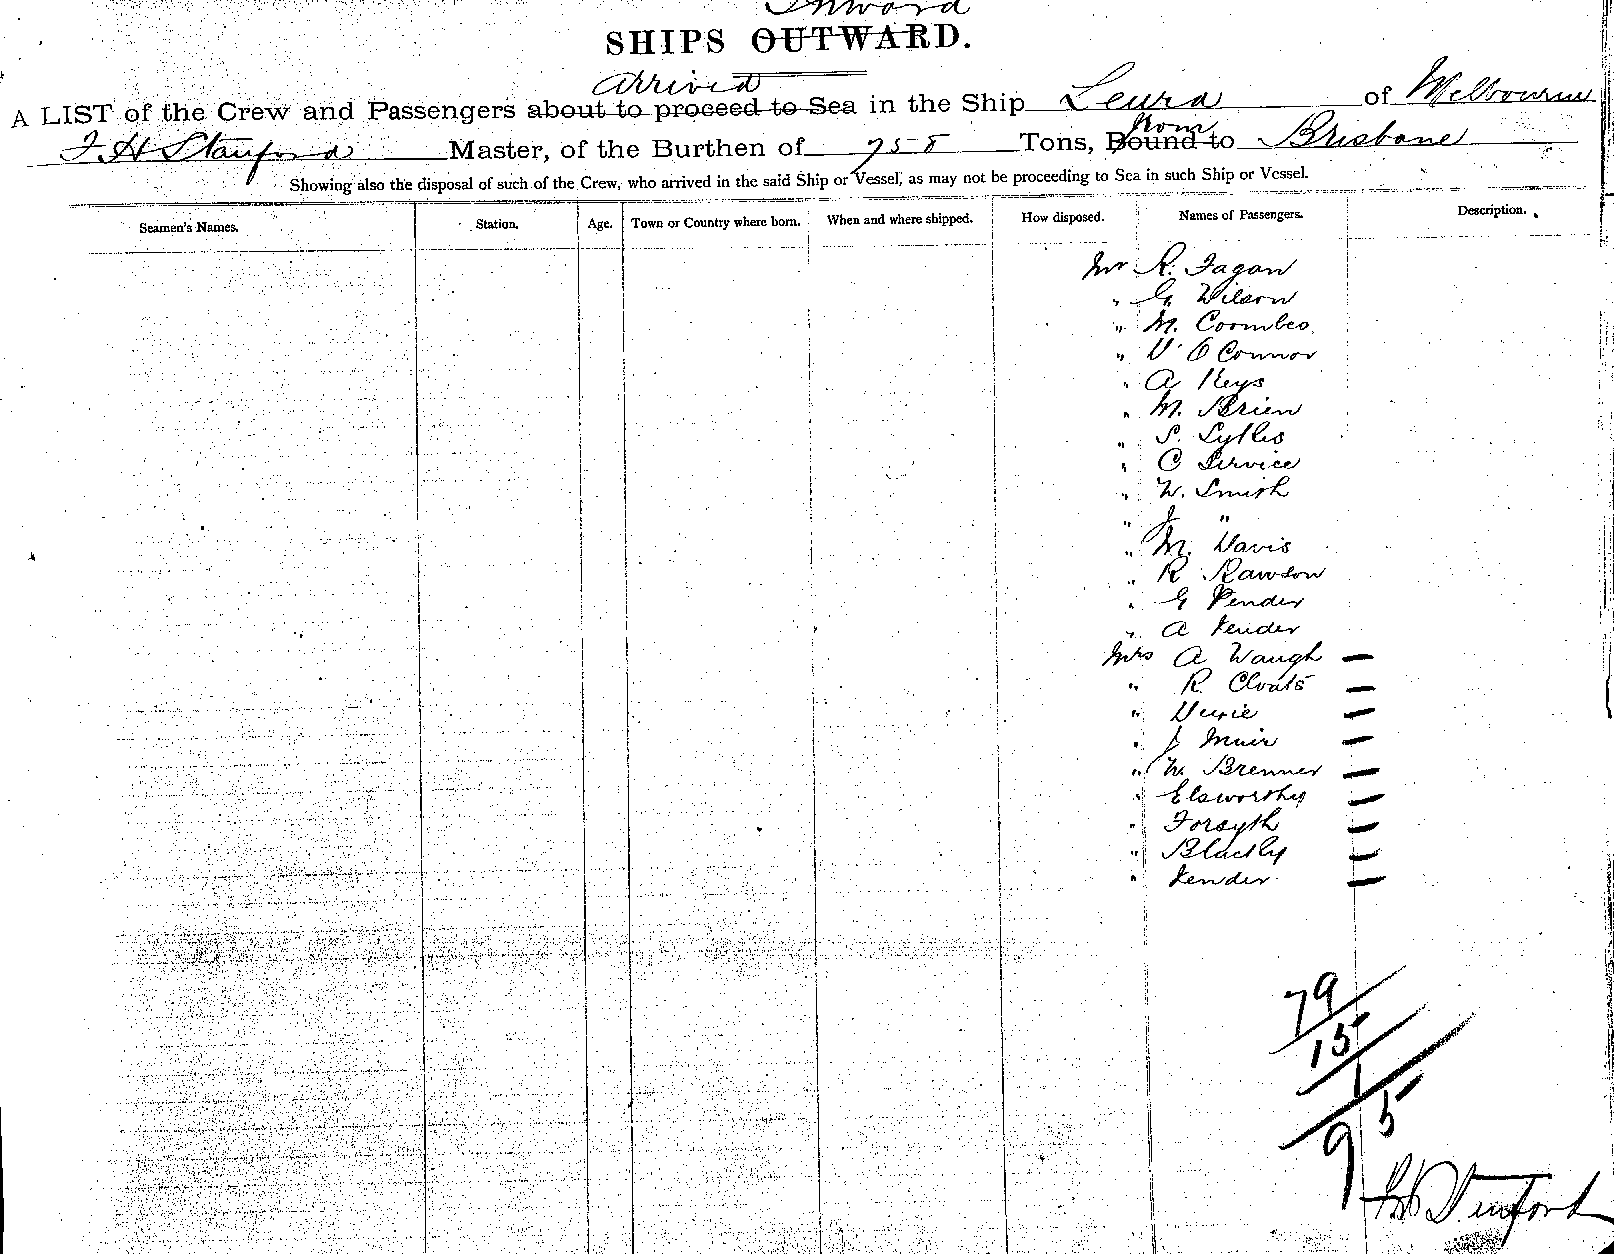 Inward
SHIPS OUTWARD.
arrived
A LIST of the Crew and Passengers about to proceed to Sea in the Ship Leura of Melbourne
from
F H Stanford Master, of the Burthen of 758 Tons, Bound to Brisbane
Showing also the disposal of such of the Crew, who arrived in the said Ship or Vessel, as may not be proceeding to Sea in such Ship or Vessel.
Seamen's Names. Station. Age. Town or Country where born. When and where shipped. How disposed. Names of Passengers. Description.
Mr R. Fagan
" G Wilson
" M. Coombes
" D O'Connor
" A Keys
" M. Brien
" S.
" C Service
" W. Smith
" J "
" M. Davis
" R Rawson
" G Pender
" A Pender
Mrs A Waugh —
" R. Cloats —
" —
" J Muir —
" W. Brenner —
" Elsworthy —
" Forsyth —
" Blackly —
" Pender —
79
15
1
95